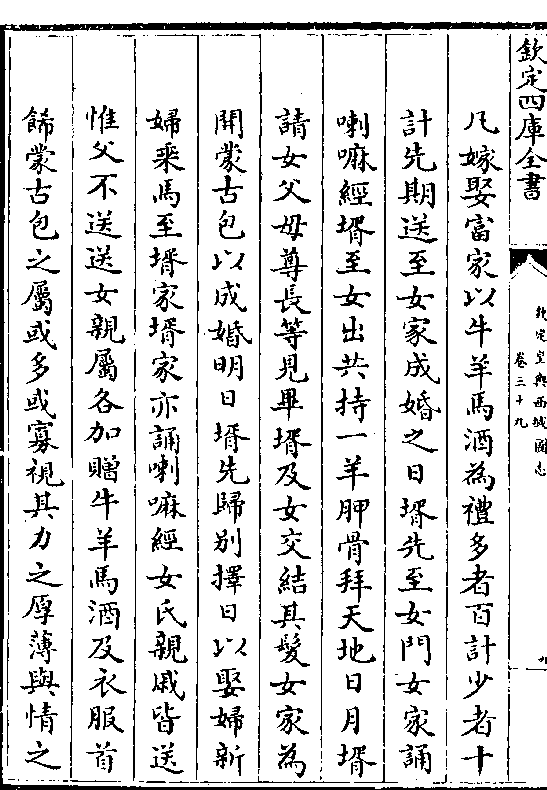 欽定四庫全書
欽定皇輿西域圖志
卷三十九
九
凡嫁娶富家以牛羊馬酒為禮多者百計少者十
計先期送至女家成婚之日壻先至女門女家誦
喇嘛經壻至女出共持一羊胛骨拜天地日月壻
請女父母尊長等見畢壻及女交結其髮女家為
開蒙古包以成婚明日壻先歸別擇日以娶婦新
婦乗馬至壻家壻家亦誦喇嘛經女氏親戚皆送
惟父不送送女親屬各加贈牛羊馬酒及衣服首
餙蒙古包之屬或多或寡視其力之厚薄與情之